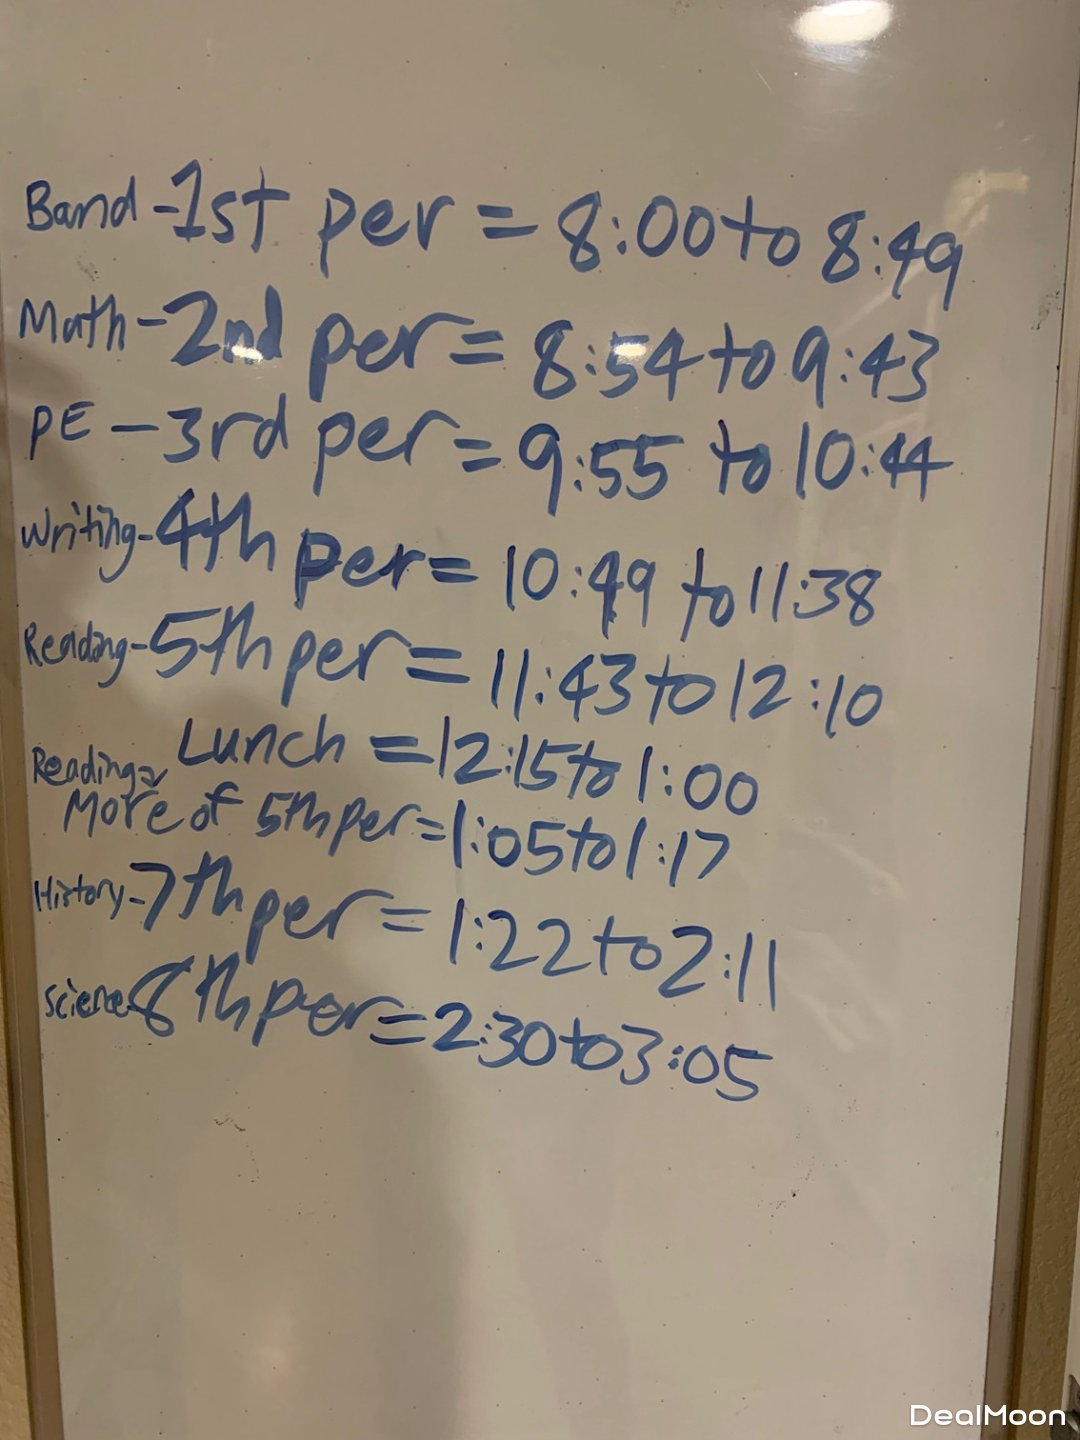 Band - 1st per = 8:00 to 8:49
Math - 2nd per = 8:54 to 9:43
PE - 3rd per = 9:55 to 10:44
Writing - 4th per = 10:49 to 11:38
Reading - 5th per = 11:43 to 12:10
Lunch = 12:15 to 1:00
Reading - More of 5th per = 1:05 to 1:17
History - 7th per = 1:22 to 2:11
Science - 8th per = 2:30 to 3:05
DealMoon